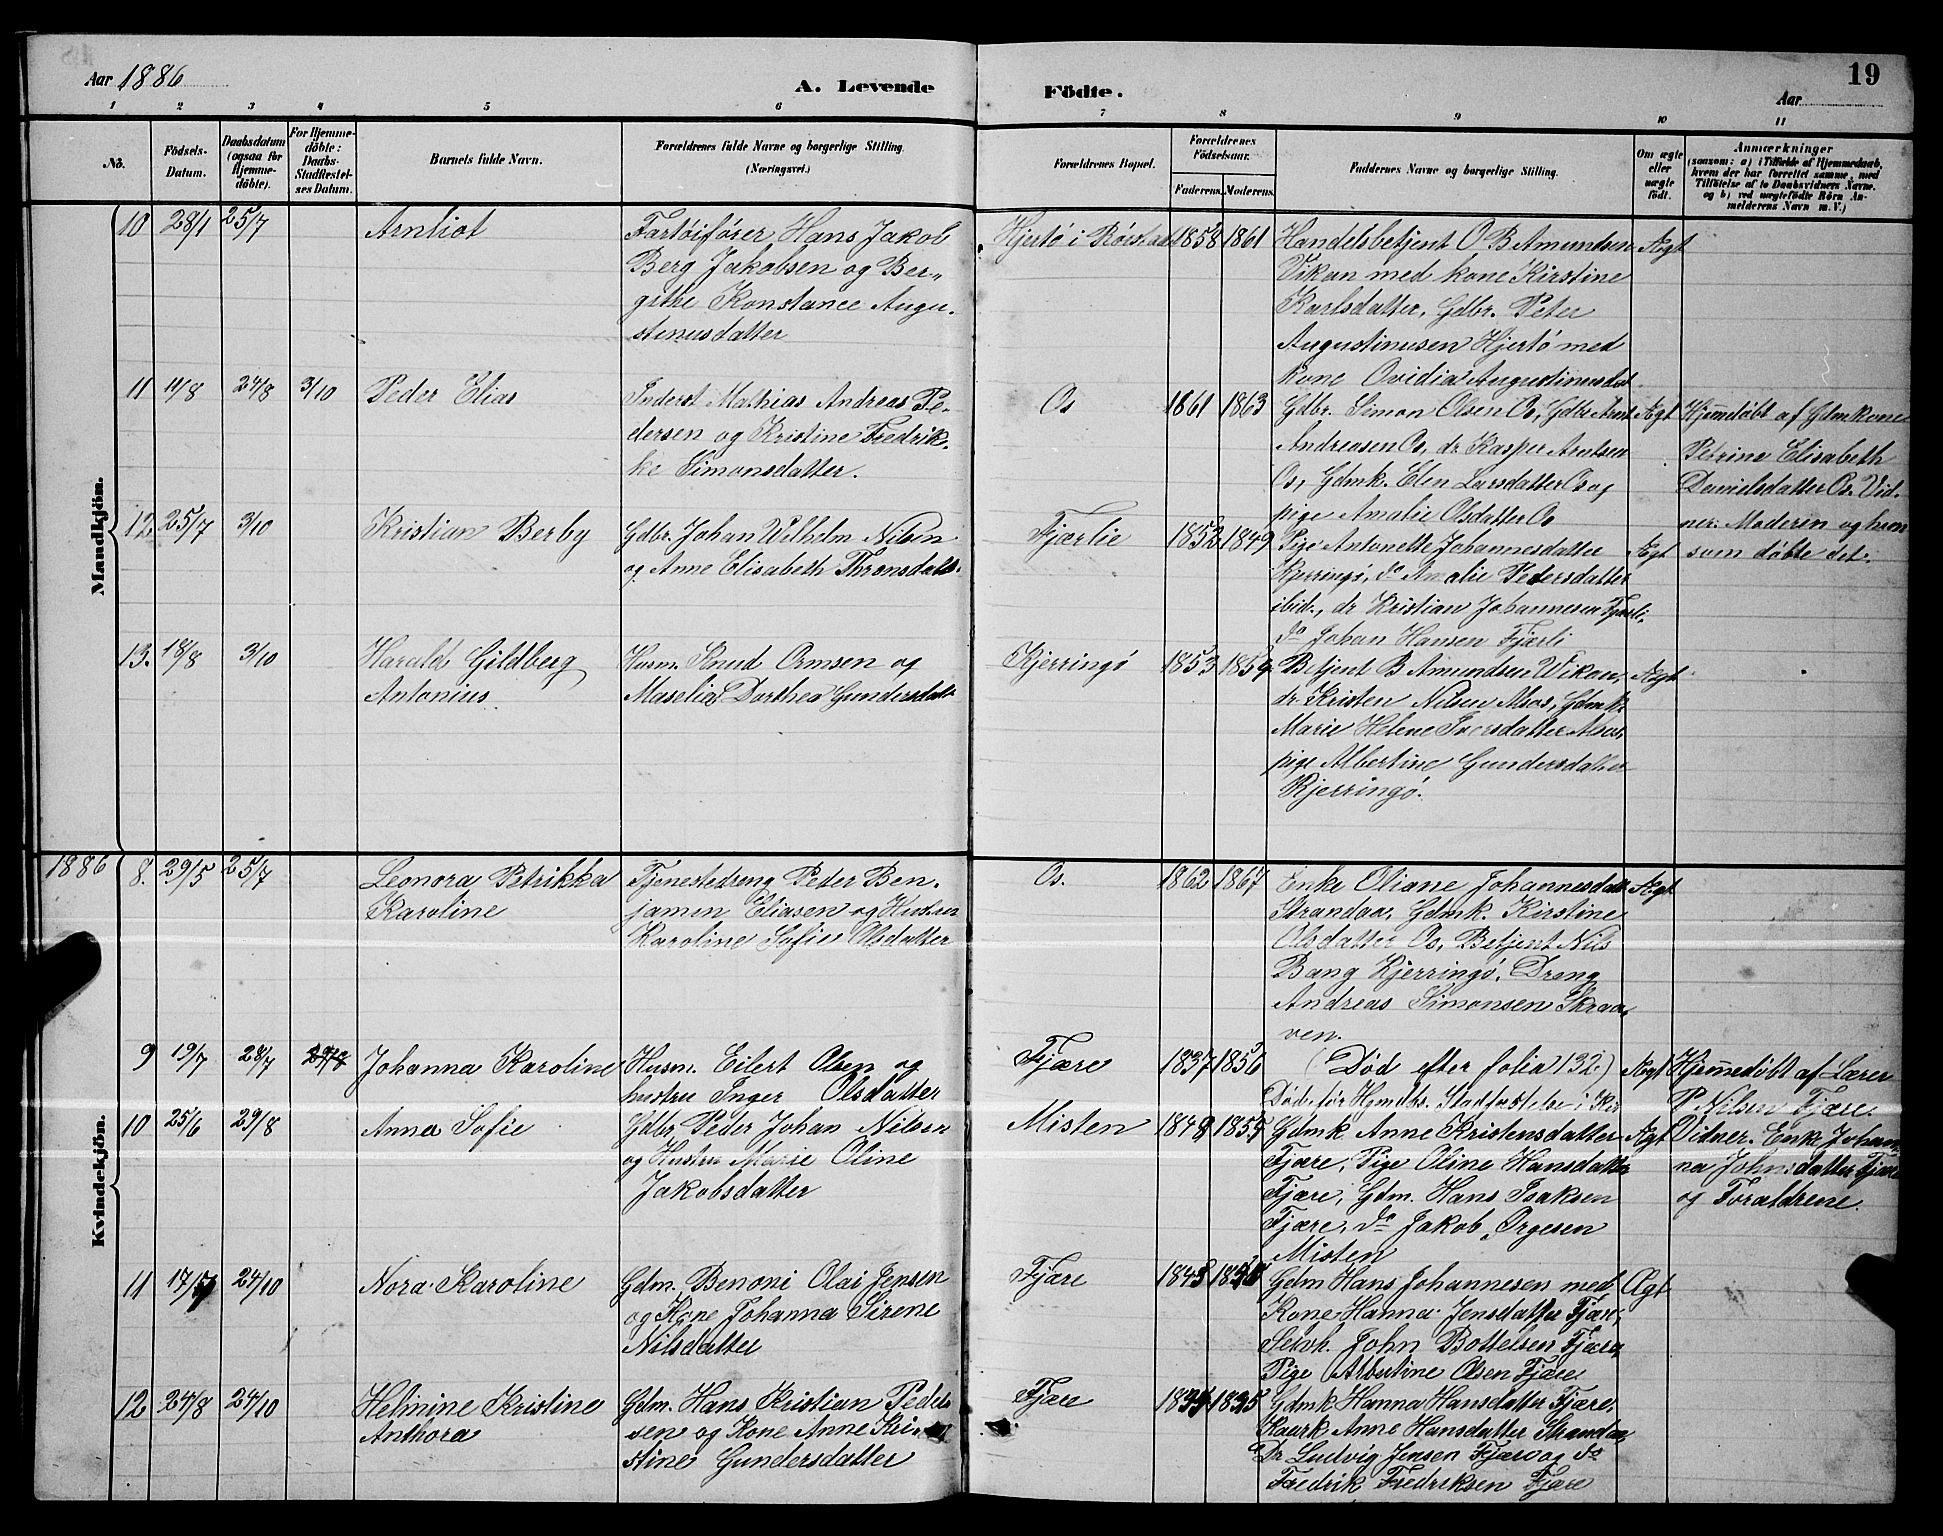 Aar 1886
A. Levende
Födte.
19
Aar
1 2 3 4 5 6 7 8 9 10 11
No.
Födsels-
Datum.
Daabsdatum
(ogsaa for
Hjemme-
döbte).
For Hjemme-
döbte:
Daabs-
Stadfæstel-
ses Datum.
Barnets fulde Navn.
Forældrenes fulde Navne og borgerlige Stilling.
(Næringsvei.)
Forældrenes Bopæl.
Forældrenes
Födselsaar.
Faderens. Moderens.
Faddernes Navne og borgerlige Stilling.
Om ægte
eller
uægte
födt.
Anmærkninger
(saasom: a) i Tilfælde af Hjemmedaab,
hvem der har forrettet samme, med
Tilföielse af to Daabsvidners Navne.
og b) ved uægtefödte Börn An-
melderens Navn m. V.)
Mandkjön.
10 28/1 25/7 Arnliot
Fartöiförer Hans Jakob
Berg Jakobsen og Ber-
githe Konstance Augu-
stinusdatter
Hjertö i 1858 1861
Handelsbetjent O B Amundsen
Vikan med kone Kirstine
Karlsdatter, Gdbr. Peter
Augustinusen Hjertö med
kone Ovidia Augustinusdat
Ægt
11 11/8 24/8 3/10 Peder Elias
Inderst Mathias Andreas Pe-
dersen og Kristine Fredrik-
ke Simonsdatter.
Os 1861 1863
Gdbr. Simon Olsen Os, Gdbr Arnt
Andreasen Os, dr Kasper Arntsen
Os, Gdmk. Elen Larsdatter Os og
pige Amalie Olsdatter Os
Ægt
Hjemmedöbt af Gdmkone
Petrine Elisabeth
Danielsdatter Os. Vid-
ner: Moderen og hun
som döbte det.
12 25/7 3/10 Kristian Berby
Gdbr. Johan Wilhelm Nilsen
og Anne Elisabeth Thronsdatt.
Fjærlie 1852 1849
Pige Antonette Johannesdatter
Kjerringö, do Amalie Pedersdatter
ibid., dr Kristian Johannesen Fjærli,
do Johan Hansen Fjærli
Ægt
13. 18/8 3/10 Harald Gildberg
Antonius
Husm. Knud Ormsen og
Maselia Dorthea Gundersdatt
Kjerringö 1853 1859
Betjent B Amundsen Vikan,
dr. Kristen Nilsen Alsos, Gdmk.
Marie Helene Iversdatter Alsos,
pige Albertine Gundersdatter
Kjerringö.
Ægt
1886
Kvindekjön.
8. 29/5 25/7 Leonora Petrikka
Karoline
Tjenestedreng Peder Ben-
jamin Eliasen og Hustru
Karoline Sofie Olsdatter
Os. 1862 1867
Enke Oliane Johannesdatt
Strandaa, Gdmk. Kirstine
Olsdatter Os, Betjent Nils
Bang Kjerringö. Dreng
Andreas Simonsen Skraa-
ven.
Ægt
9 19/7 28/7 Johanna Karoline
Husm. Eilert Olsen og
hustru Inger Olsdatter
Fjære 1837 1856
(Död efter folia 132)
Död för Hjmdbs. Stadfæstelse i Kir
Ægt
Hjemmedöbt af Lærer
P Nilsen Fjære.
Vidner. Enke Johan-
na Johnsdatter Fjære
og Forældrene.
10 25/6 29/8 Anna Sofie
Gdbr Peder Johan Nilsen
og Hustru Marie Oline
Jakobsdatter
Misten 1848 1855
Gdmk Anne Kristensdatter
Fjære, Pige Oline Hansdatter
Fjære, Gdm. Hans Isaksen
Fjære, do Jakob Örgesen
Misten
Ægt
11 17/7 24/10 Nora Karoline
Gdm. Benoni Olai Jensen
og Kone Johanna Sirene
Nilsdatter
Fjære
Gdm Hans Johannesen med
Kone Hanna Jensdatter Fjære,
Selvh. John Bottelsen Fjære,
Pige Albertine Olsen Fjære
Ægt
12 24/8 24/10 Helmine Kristine
Anthora
Gdm. Hans Kristian Peder-
sen og Kone Anne Kri-
stine Gundersdatter
Fjære
Gdmk Hanna Hansdatter Fjære,
Anne Hansdatter Strandaa,
Dr Ludvig Jensen Fjære og do
Fredrik Fredriksen Fjære